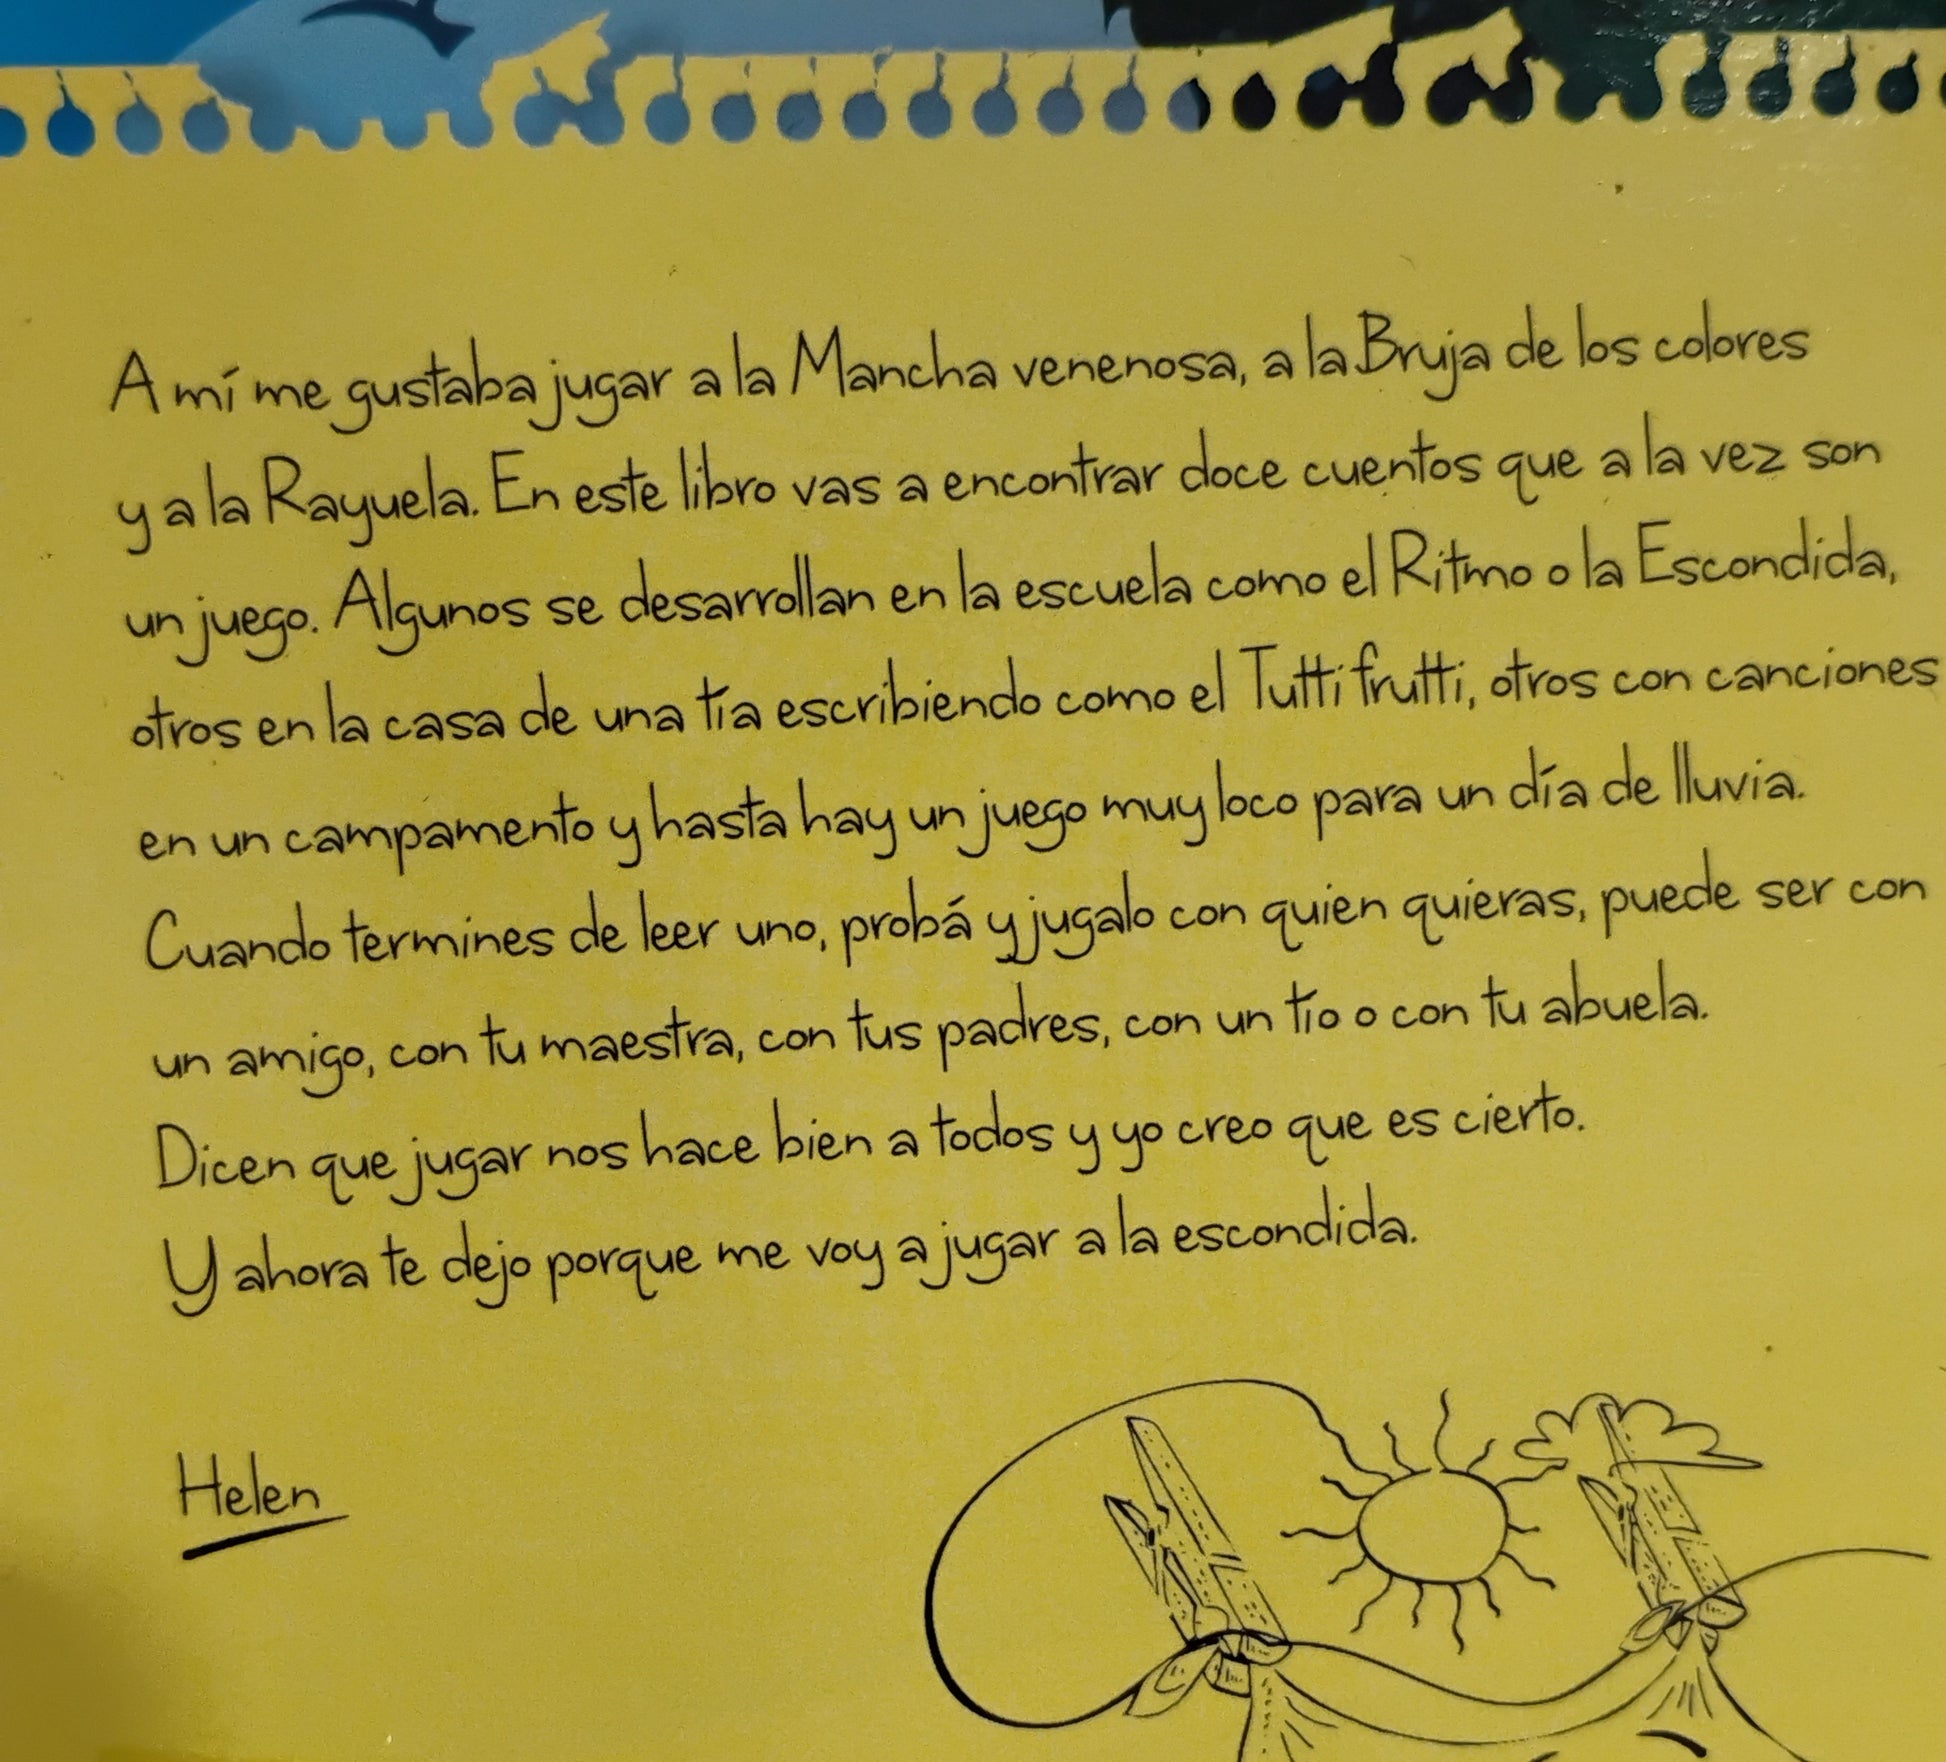 A mí me gustaba jugar a la Mancha venenosa, a la Bruja de los colores
y a la Rayuela. En este libro vas a encontrar doce cuentos que a la vez son
un juego. Algunos se desarrollan en la escuela como el Ritmo o la Escondida,
otros en la casa de una tía escribiendo como el Tutti frutti, otros con canciones
en un campamento y hasta hay un juego muy loco para un día de lluvia.
Cuando termines de leer uno, probá y jugalo con quien quieras, puede ser con
un amigo, con tu maestra, con tus padres, con un tío o con tu abuela.
Dicen que jugar nos hace bien a todos y yo creo que es cierto.
Y ahora te dejo porque me voy a jugar a la escondida.
Helen